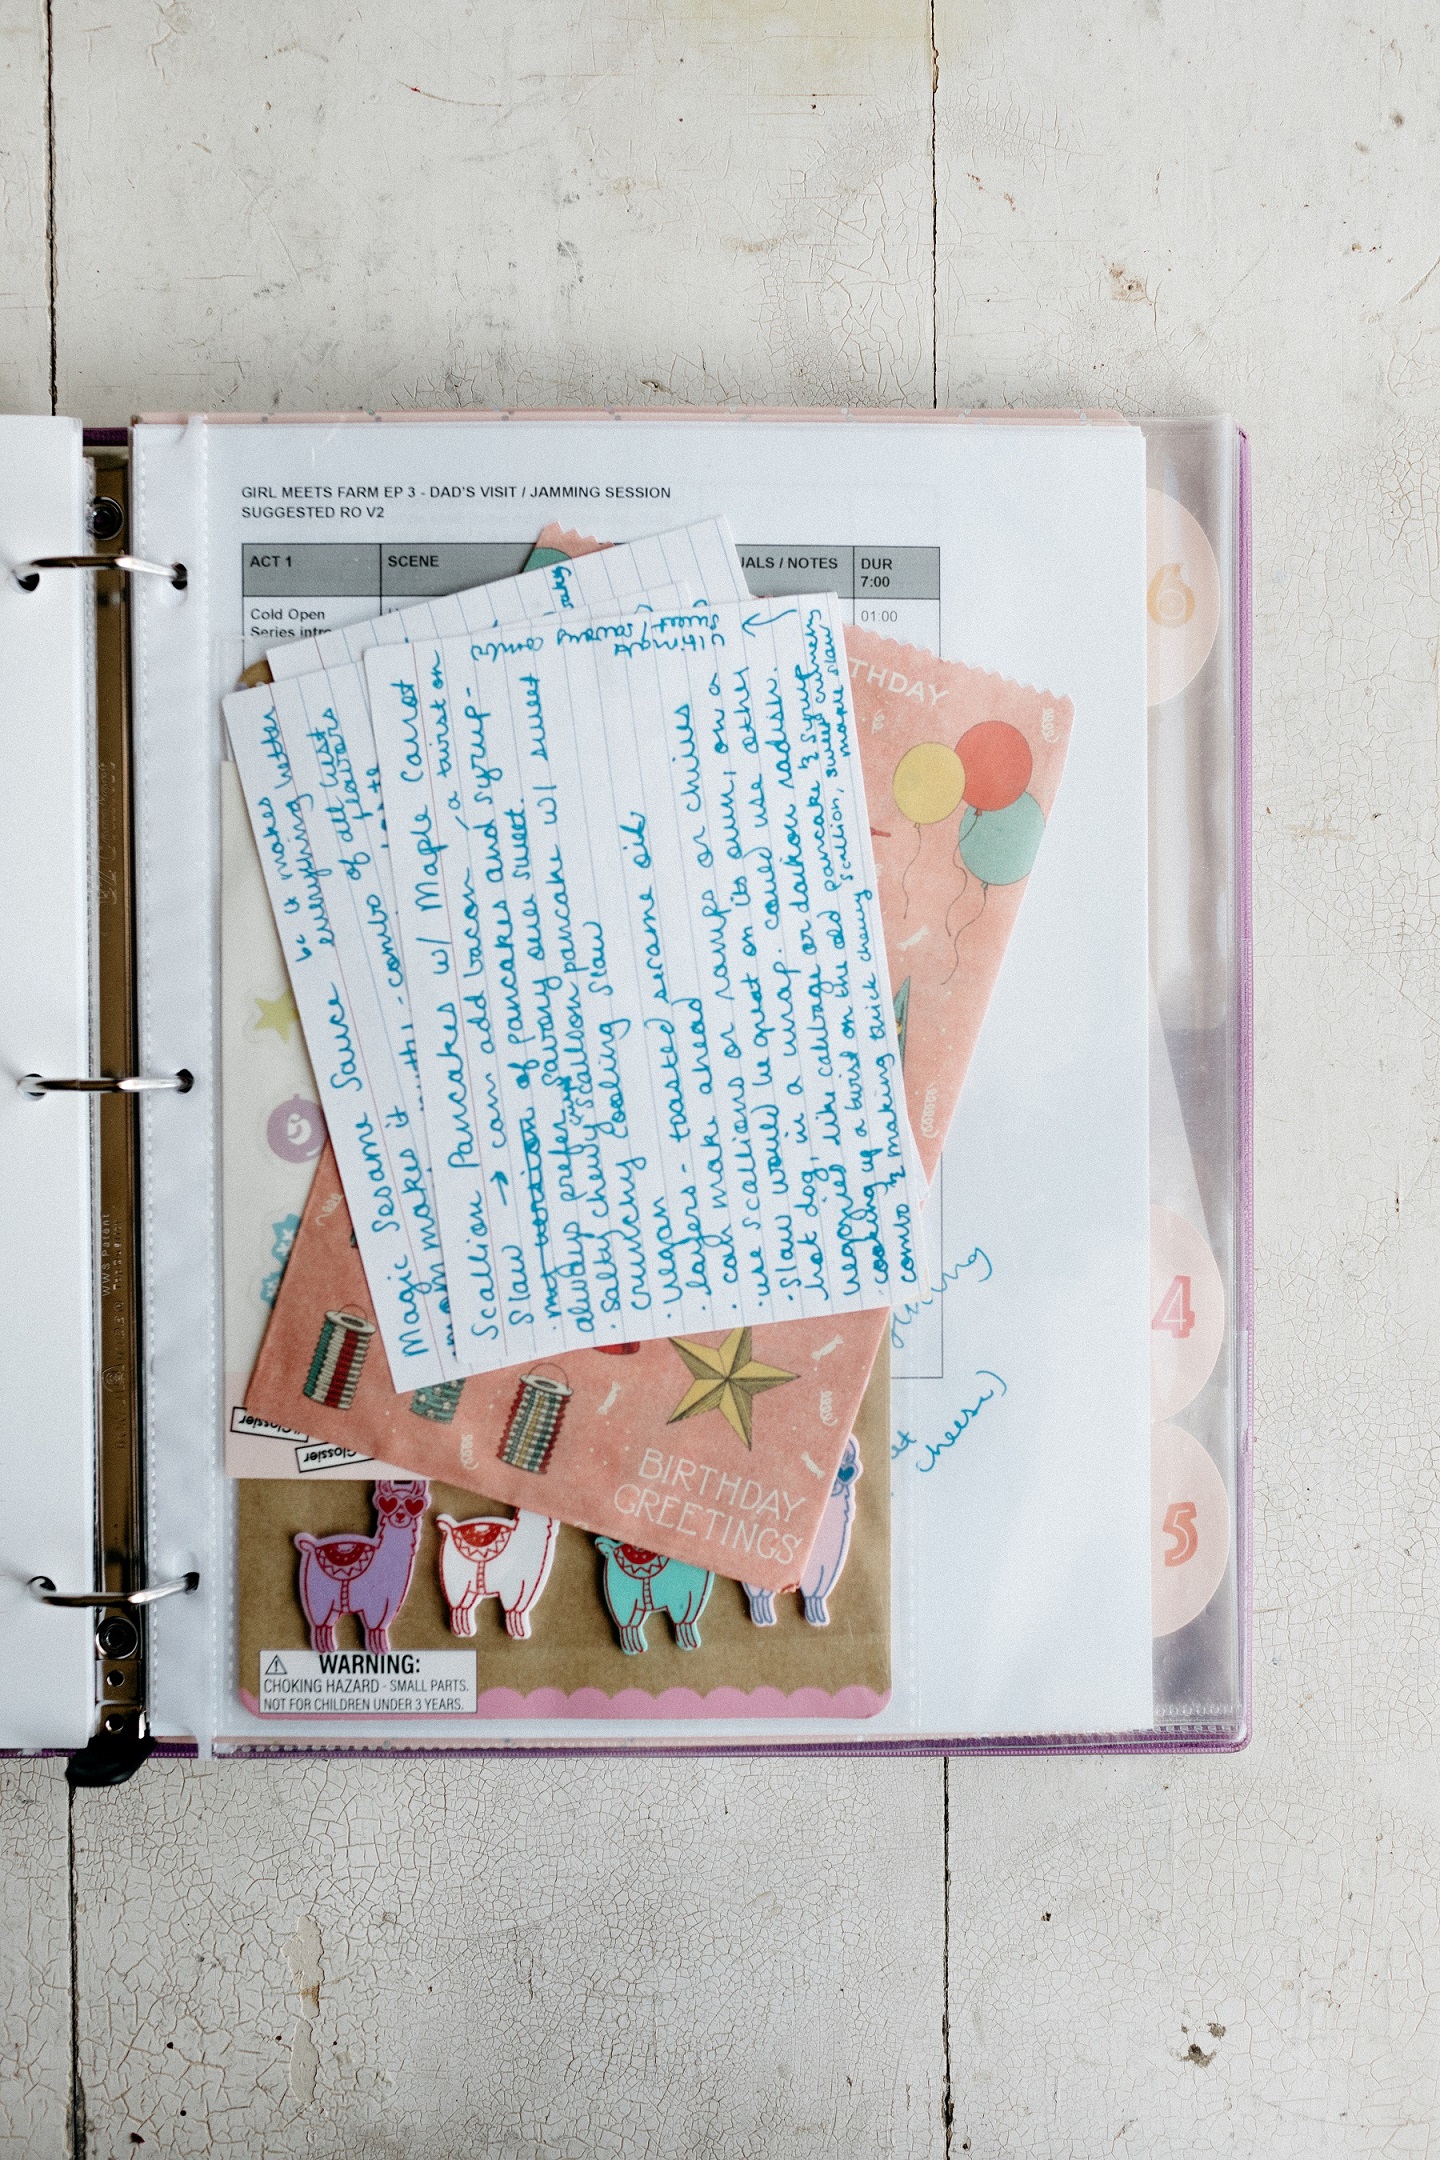 GIRL MEETS FARM EP 3 - DAD'S VISIT / JAMMING SESSION
SUGGESTED RO V2
ACT 1
SCENE
UALS / NOTES
DUR
7:00
Cold Open
Series intro
01:00
Magic Sesame Sauce
be it makes
everything better
makes it
- combo of all best
flavors
mom makes
Scallion Pancakes w/ Maple Carrot
Slaw → can add bacon, a twist on
my version of pancakes and syrup -
always prefer savory over sweet.
· salty chewy scallion pancake w/ sweet
crunchy cooling slaw
· vegan
· layers - toasted sesame oil
· can make ahead
· use scallions or ramps or chives
· slaw would be great on its own, on a
hot dog, in a wrap. could use other
veggies like cabbage or daikon radish.
· cooking up a twist on the old pancake & syrup
combo & making thick chewy scallion, sweet crunchy
maple slaw
sweet
savory
combo
THDAY
BIRTHDAY
GREETINGS
Glossier
Glossier
cheese)
WARNING:
CHOKING HAZARD - SMALL PARTS.
NOT FOR CHILDREN UNDER 3 YEARS.
6
4
5